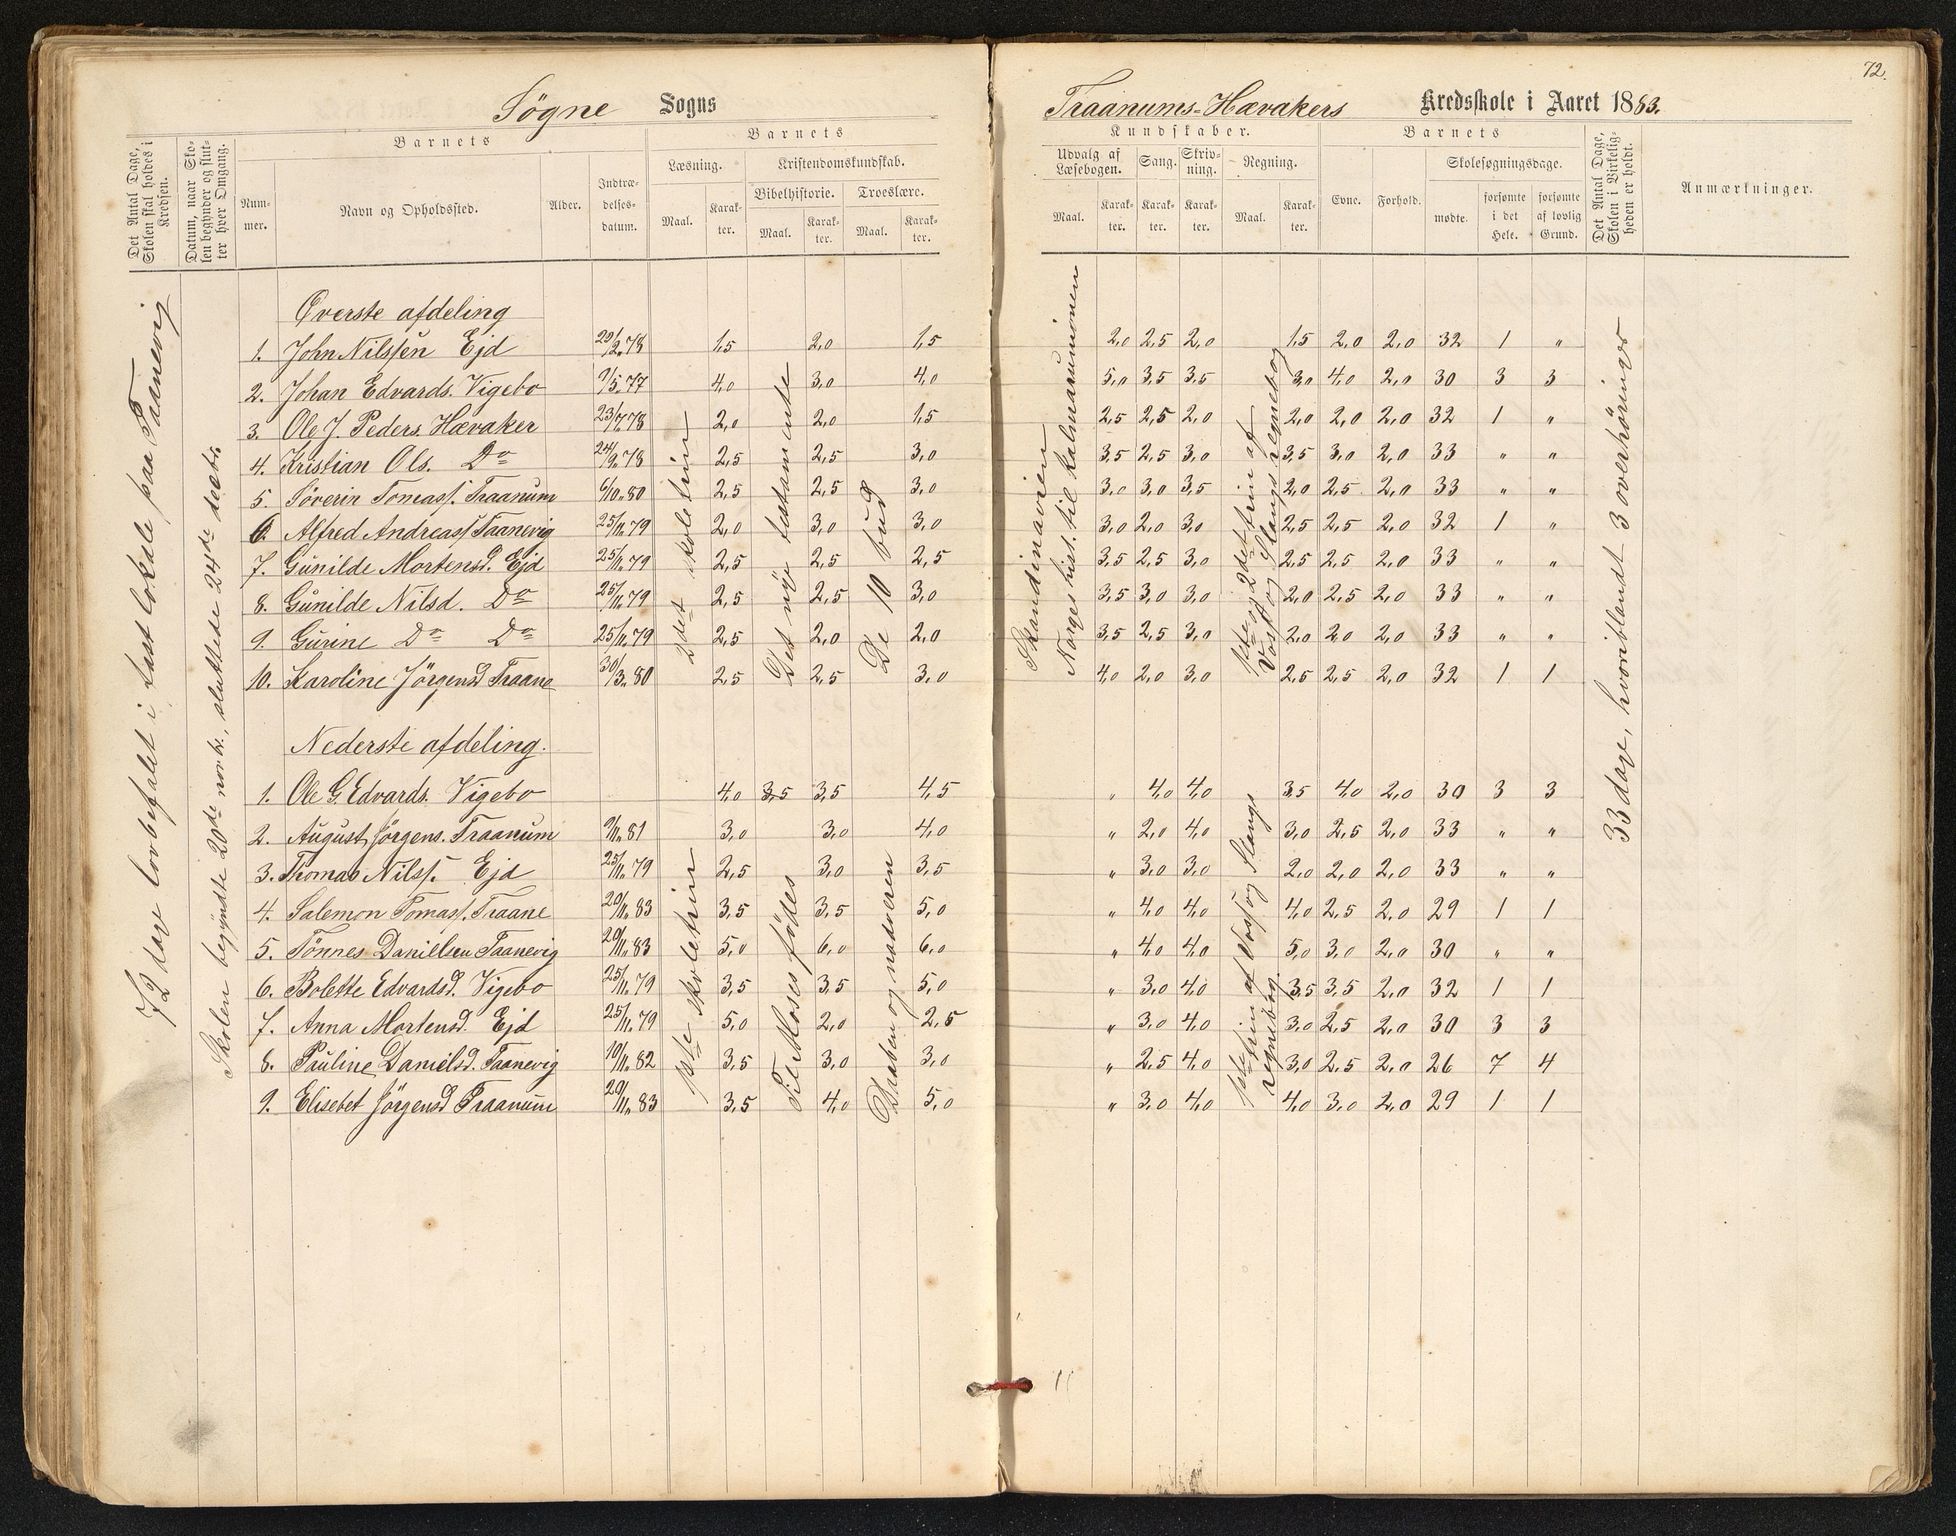 72.
Søgne Sogns
Traanums-Hævakers Kredsskole i Aaret 1883.
Det Antal Dage, Skolen skal holdes i Kredsen.
Datum, naar Skolen begynder og slutter hver Omgang.
Barnets
Nummer.
Navn og Opholdssted.
Alder.
Indtrædelsesdatum.
Barnets
Læsning.
Maal.
Karakter.
Kristendomskundskab.
Bibelhistorie.
Maal.
Karakter.
Troeslære.
Maal.
Karakter.
Kundskaber.
Udvalg af Læsebogen.
Maal.
Karakter.
Sang.
Karakter.
Skrivning.
Karakter.
Regning.
Maal.
Karakter.
Barnets
Evne.
Forhold.
Skolesøgningsdage.
mødte.
forsømte i det Hele.
forsømte af lovlig Grund.
Det Antal Dage, Skolen i Virkeligheden er holdt.
Anmærkninger.
72 dage lovbefalet i fast lokale paa Taanevig
Skolen begyndte 20de novbr., sluttede 24de decbr.
Øverste afdeling
2det skoletrin
Det nye testamente
De 10 bud
Skandinavien
Norges hist. til Kalmarunionen
1ste og 2det trin af
Voss og Slangs regnebog
33 dage, hvoriblandt 3 overhøringer
1. John Nilssen Ejd 20/2. 78 1,5 2,0 1,5 2,0 2,5 2,0 1,5 2,0 2,0 32 1 "
2. Johan Edvards. Vigebo 9/5. 77 4,0 3,0 4,0 5,0 3,5 3,5 3,0 4,0 2,0 30 3 3
3. Ole J. Peders. Hævaker 23/7. 78 2,0 2,0 1,5 2,5 2,5 2,0 2,0 2,0 2,0 32 1 "
4. Kristian Ols. Do 24/9. 78 2,5 2,5 3,0 3,5 2,5 3,0 3,5 3,0 2,0 33 " "
5. Søverin Tomass. Traanum 6/10. 80 2,5 2,5 3,0 3,0 3,0 3,5 2,0 2,5 2,0 33 " "
6. Alfred Andreass. Taanevig 25/11. 79 2,0 3,0 3,0 3,0 2,0 3,0 2,5 2,5 2,0 32 1 "
7. Gunilde Mortensd. Ejd 25/11. 79 2,5 2,5 2,5 3,5 2,5 3,0 2,5 2,5 2,0 33 " "
8. Gunilde Nilsd. Do 25/11. 79 2,5 2,5 3,0 3,5 3,0 3,0 2,0 2,5 2,0 33 " "
9. Gurine Do Do 25/11. 79 2,5 2,0 2,0 3,5 2,5 3,0 2,0 2,0 2,0 33 " "
10. Karoline Jørgensd Traane 30/3. 80 2,5 2,5 3,0 4,0 2,0 3,0 2,5 2,5 2,0 32 1 1
Nederste afdeling.
1ste skoletrin
Til Moses fødes
Daaben og nadveren
1ste trin af Voss og Slangs
regnebog.
1. Ole G. Edvards. Vigebo 4,0 3,5 3,5 4,5 " 4,0 4,0 3,5 4,0 2,0 30 3 3
2. August Jørgens. Traanum 9/11. 81 3,0 3,0 4,0 " 2,0 4,0 3,0 2,5 2,0 33 " "
3. Thomas Nilss. Ejd 25/11. 79 2,5 3,0 3,5 " 3,0 3,0 2,0 2,0 2,0 33 " "
4. Salemon Tomass. Traane 20/11. 83 3,5 3,5 5,0 " 4,0 4,0 4,0 2,5 2,0 29 1 1
5. Tønnes Danielsen Taanevig 20/11. 83 5,0 6,0 6,0 " 4,0 4,0 5,0 3,0 2,0 30 " "
6. Bolette Edvardsd. Vigebo 25/11. 79 3,5 3,5 5,0 " 3,0 4,0 3,5 3,5 2,0 32 1 1
7. Anna Mortensd. Ejd 25/11. 79 5,0 2,0 2,5 " 3,0 4,0 3,0 2,5 2,0 30 3 3
8. Pauline Danielsd. Taanevig 10/11. 82 3,5 3,0 3,0 " 2,5 4,0 3,0 2,5 2,0 26 7 4
9. Elisebet Jørgensd Traanum 20/11. 83 3,5 4,0 5,0 " 3,0 4,0 4,0 3,0 2,0 29 1 1